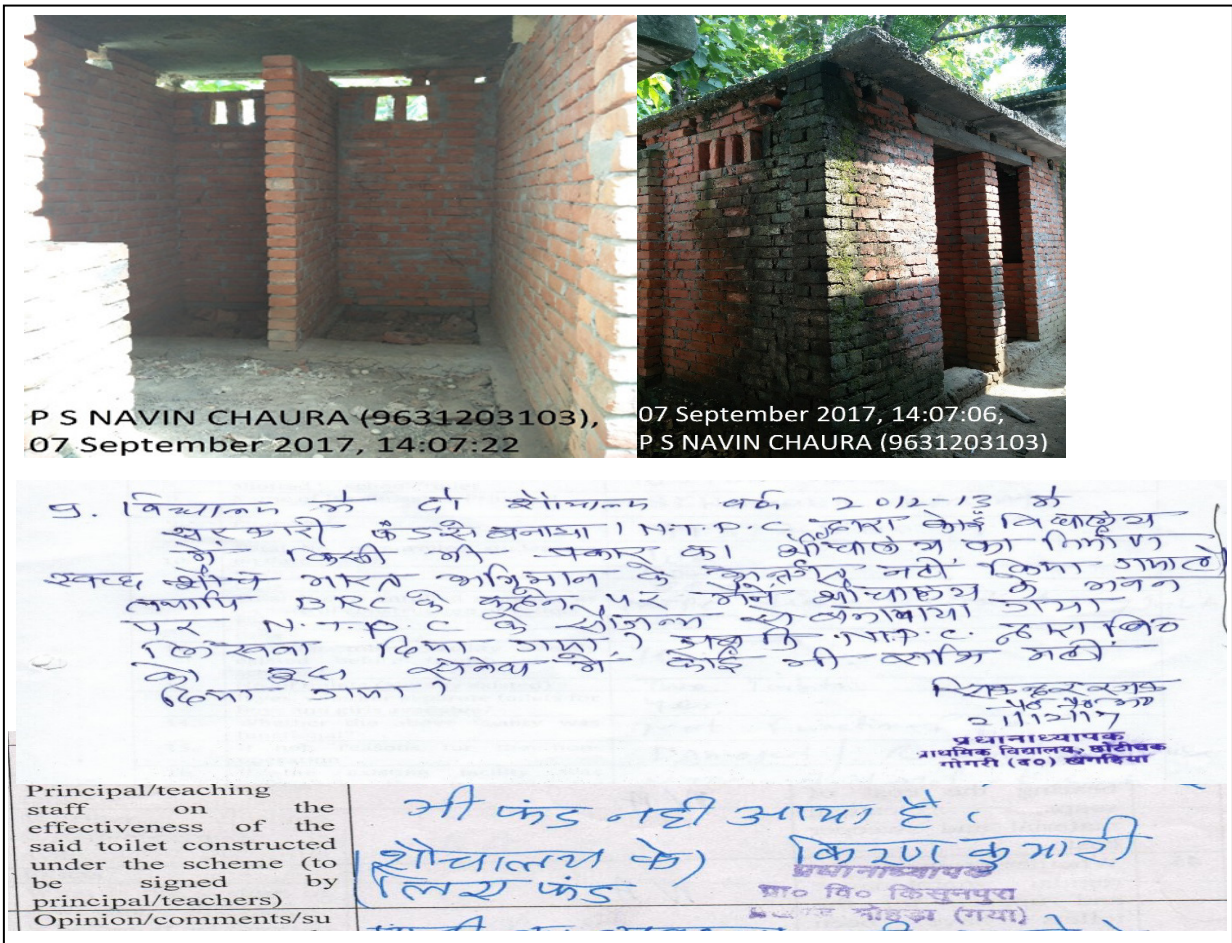 P S NAVIN CHAURA (9631203103),
07 September 2017, 14:07:22
07 September 2017, 14:07:06,
P S NAVIN CHAURA (9631203103)
9. विद्यालय में दो शौचालय वर्ष 2012-13 में
सरकारी फंड से बनाया । N.T.P.C. द्वारा कोई विद्यालय
में किसी भी प्रकार का शौचालय का निर्माण
स्वच्छ भारत अभियान के अन्तर्गत नहीं किया गया है
तथापि BRC के कहने पर मैंने शौचालय के भवन
पर N.T.P.C के सौजन्य से बनवाया गया
लिखवा दिया गया । जबकि N.T.P.C. द्वारा
को इस संबंध में कोई भी राशि नहीं
दिया गया ।
21/12/17
प्रधानाध्यापक
प्राथमिक विद्यालय, छोटीचक
गोगरी (द०) खगड़िया
Principal/teaching
staff on the
effectiveness of the
said toilet constructed
under the scheme (to
be signed by
principal/teachers)
भी फंड नहीं आया है ।
(शौचालय के) किरण कुमारी
लिए फंड
प्रधानाध्यापक
प्रा० वि० किसुनपुरा
मोहड़ा (गया)
Opinion/comments/su